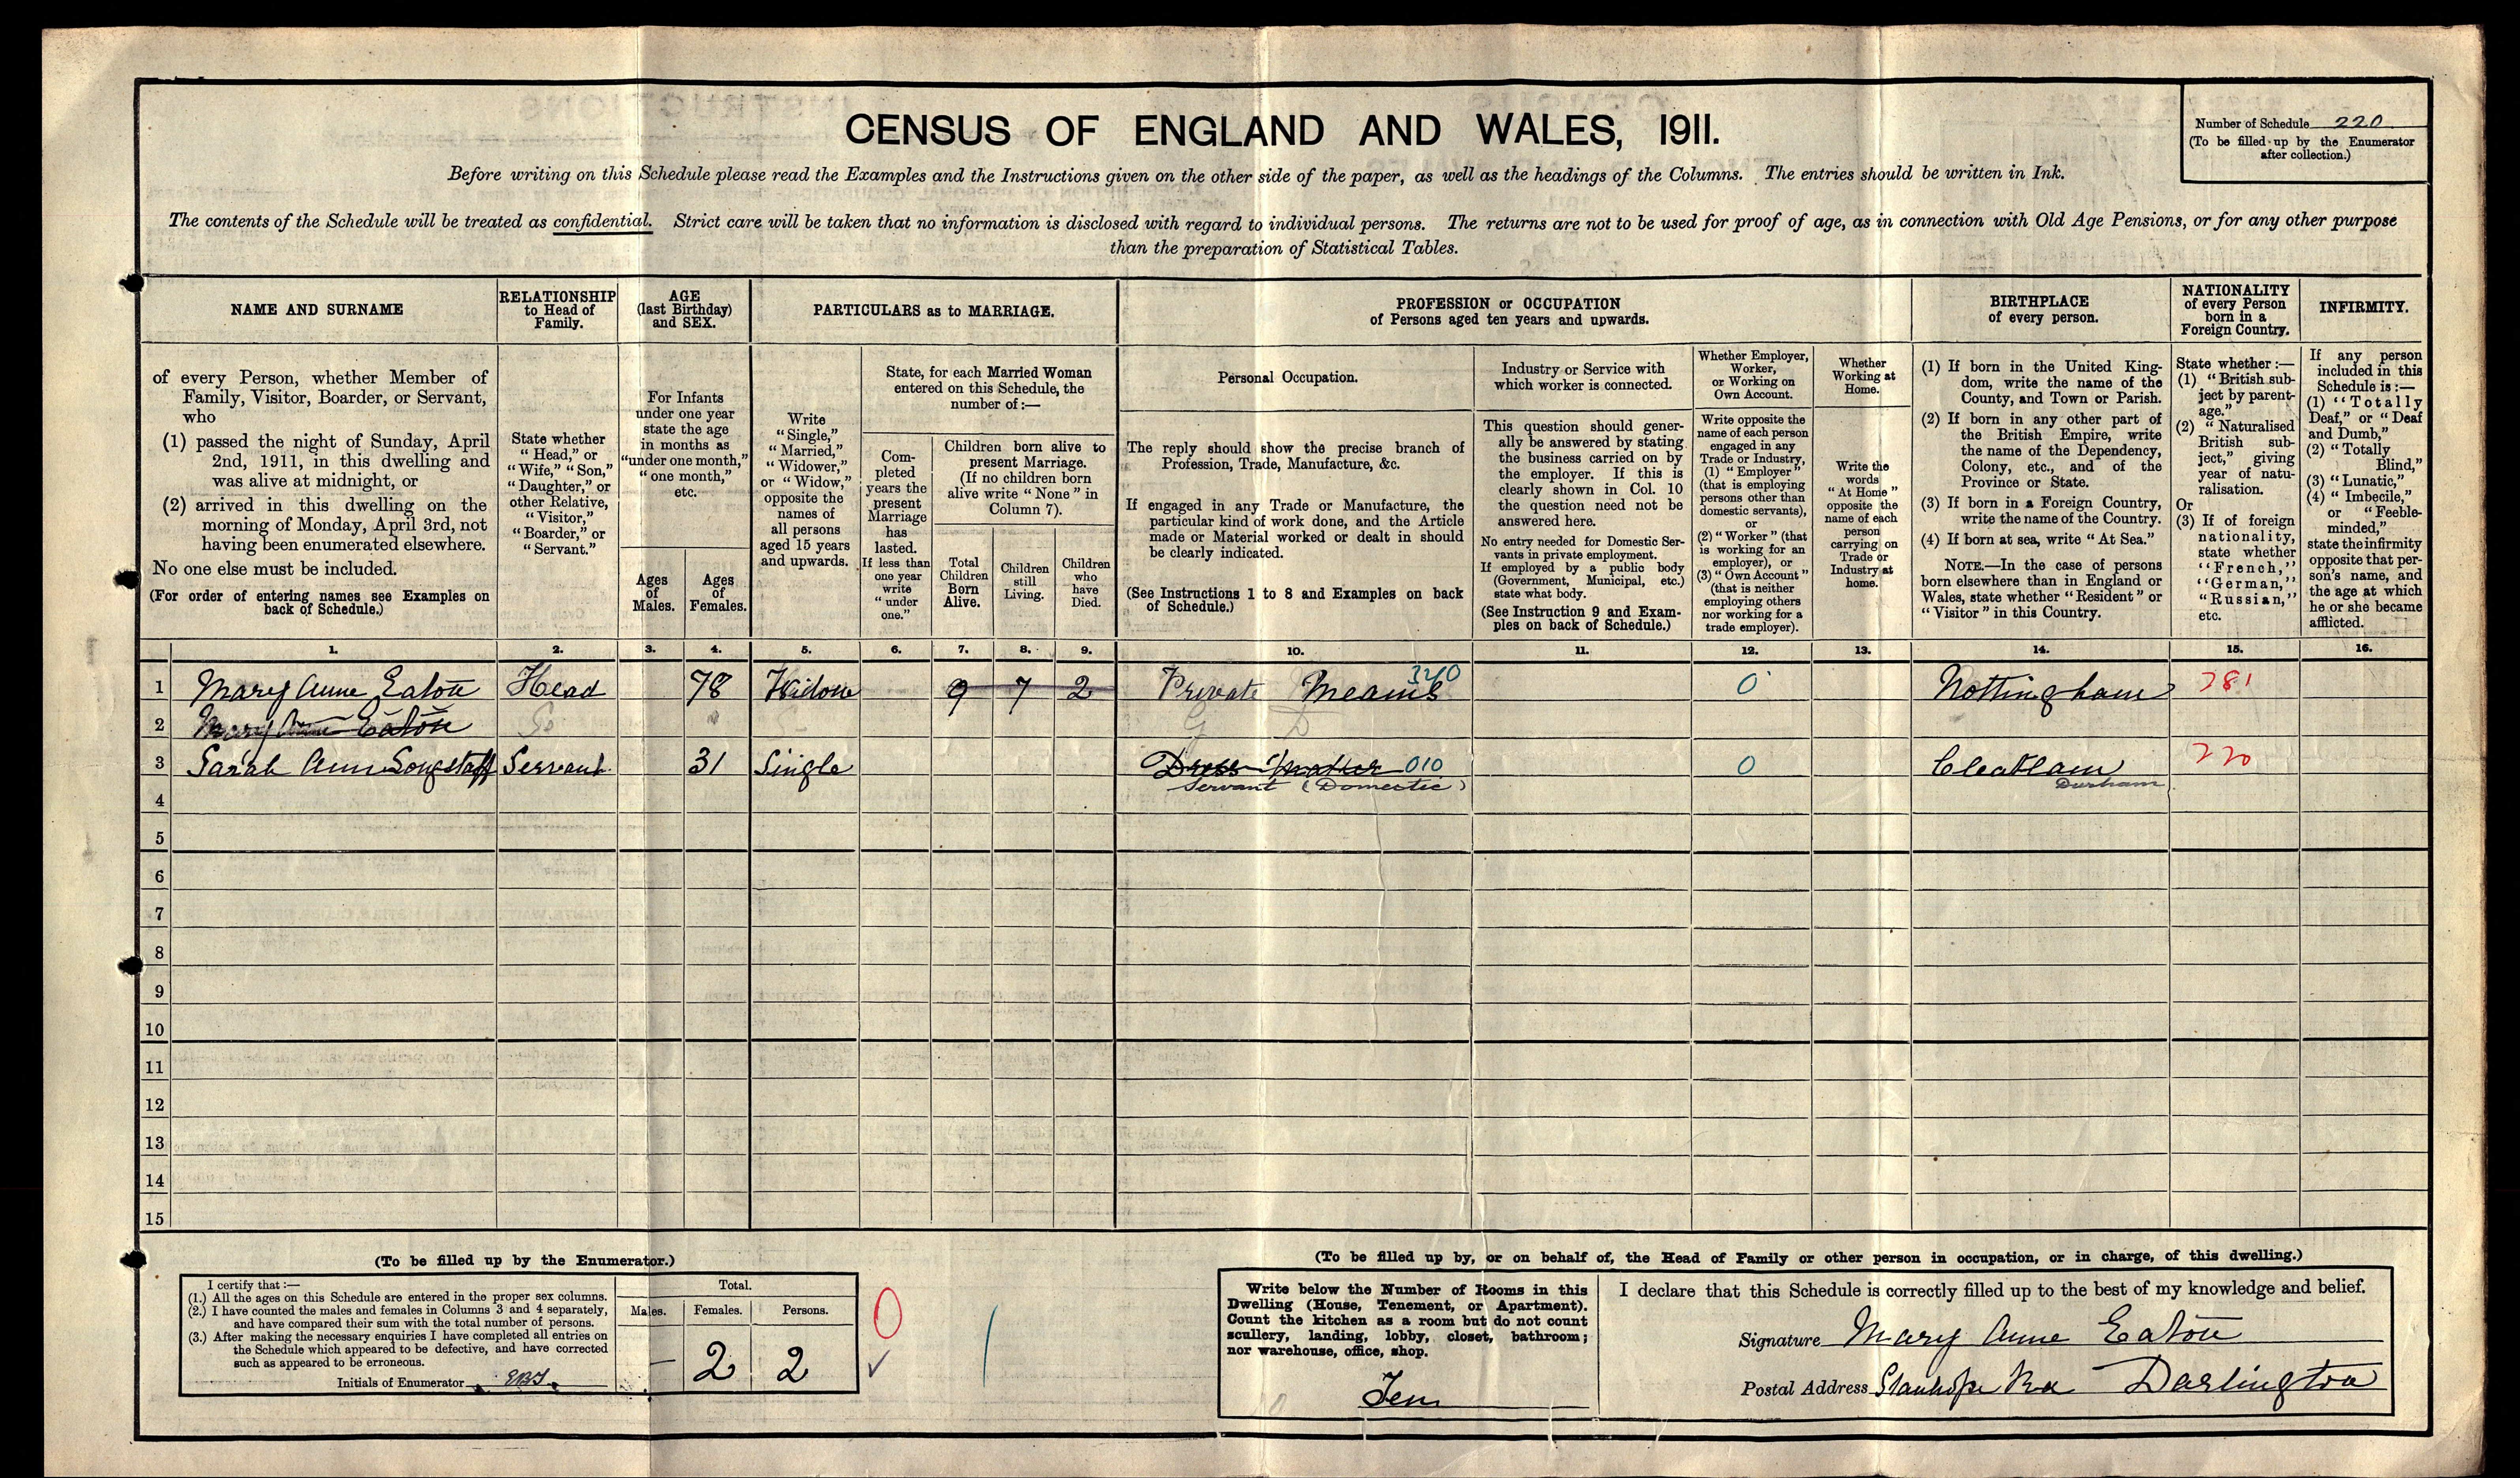 CENSUS OF ENGLAND AND WALES, 1911.
Number of Schedule 220
(To be filled up by the Enumerator
after collection.)
Before writing on this Schedule please read the Examples and the Instructions given on the other side of the paper, as well as the headings of the Columns. The entries should be written in Ink.
The contents of the Schedule will be treated as confidential. Strict care will be taken that no information is disclosed with regard to individual persons. The returns are not to be used for proof of age, as in connection with Old Age Pensions, or for any other purpose
than the preparation of Statistical Tables.
NAME AND SURNAME
of every Person, whether Member of
Family, Visitor, Boarder, or Servant,
who
(1) passed the night of Sunday, April
2nd, 1911, in this dwelling and
was alive at midnight, or
(2) arrived in this dwelling on the
morning of Monday, April 3rd, not
having been enumerated elsewhere.
No one else must be included.
(For order of entering names see Examples on
back of Schedule.)
RELATIONSHIP
to Head of
Family.
State whether
"Head," or
"Wife," "Son,"
"Daughter," or
other Relative,
"Visitor,"
"Boarder," or
"Servant."
AGE
(last Birthday)
and SEX.
For Infants
under one year
state the age
in months as
"under one month,"
"one month,"
etc.
Ages
of
Males.
Ages
of
Females.
PARTICULARS as to MARRIAGE.
Write
"Single,"
"Married,"
"Widower,"
or "Widow,"
opposite the
names of
all persons
aged 15 years
and upwards.
State, for each Married Woman
entered on this Schedule, the
number of:—
Com-
pleted
years the
present
Marriage
has
lasted.
If less than
one year
write
"under
one."
Children born alive to
present Marriage.
(If no children born
alive write "None" in
Column 7).
Total
Children
Born
Alive.
Children
still
Living.
Children
who
have
Died.
PROFESSION or OCCUPATION
of Persons aged ten years and upwards.
Personal Occupation.
The reply should show the precise branch of
Profession, Trade, Manufacture, &c.
If engaged in any Trade or Manufacture, the
particular kind of work done, and the Article
made or Material worked or dealt in should
be clearly indicated.
(See Instructions 1 to 8 and Examples on back
of Schedule.)
Industry or Service with
which worker is connected.
This question should gener-
ally be answered by stating
the business carried on by
the employer. If this is
clearly shown in Col. 10
the question need not be
answered here.
No entry needed for Domestic Ser-
vants in private employment.
If employed by a public body
(Government, Municipal, etc.)
state what body.
(See Instruction 9 and Exam-
ples on back of Schedule.)
Whether Employer,
Worker,
or Working on
Own Account.
Write opposite the
name of each person
engaged in any
Trade or Industry,
(1) "Employer"
(that is employing
persons other than
domestic servants),
or
(2) "Worker" (that
is working for an
employer), or
(3) "Own Account"
(that is neither
employing others
nor working for a
trade employer).
Whether
Working at
Home.
Write the
words
"At Home"
opposite the
name of each
person
carrying on
Trade or
Industry at
home.
BIRTHPLACE
of every person.
(1) If born in the United King-
dom, write the name of the
County, and Town or Parish.
(2) If born in any other part of
the British Empire, write
the name of the Dependency,
Colony, etc., and of the
Province or State.
(3) If born in a Foreign Country,
write the name of the Country.
(4) If born at sea, write "At Sea."
NOTE.—In the case of persons
born elsewhere than in England or
Wales, state whether "Resident" or
"Visitor" in this Country.
NATIONALITY
of every Person
born in a
Foreign Country.
State whether:—
(1) "British sub-
ject by parent-
age."
(2) "Naturalised
British sub-
ject," giving
year of natu-
ralisation.
Or
(3) If of foreign
nationality,
state whether
"French,"
"German,"
"Russian,"
etc.
INFIRMITY.
If any person
included in this
Schedule is:—
(1) "Totally
Deaf," or "Deaf
and Dumb,"
(2) "Totally
Blind,"
(3) "Lunatic,"
(4) "Imbecile,"
or "Feeble-
minded,"
state the infirmity
opposite that per-
son's name, and
the age at which
he or she became
afflicted.
1. 2. 3. 4. 5. 6. 7. 8. 9. 10. 11. 12. 13. 14. 15. 16.
1 Mary Anne Eaton Head 78 Widow 9 7 2 Private Means 340 0 Nottingham 281
2 Mary Ann Eaton
3 Sarah Ann Longstaff Servant 31 Single Dress Maker 010 0 Cleatlam 220
Servant (Domestic) Durham
4
5
6
7
8
9
10
11
12
13
14
15
(To be filled up by the Enumerator.)
I certify that:—
(1.) All the ages on this Schedule are entered in the proper sex columns.
(2.) I have counted the males and females in Columns 3 and 4 separately,
and have compared their sum with the total number of persons.
(3.) After making the necessary enquiries I have completed all entries on
the Schedule which appeared to be defective, and have corrected
such as appeared to be erroneous.
Initials of Enumerator
Total.
Males. Females. Persons.
— 2 2
0
(To be filled up by, or on behalf of, the Head of Family or other person in occupation, or in charge, of this dwelling.)
Write below the Number of Rooms in this
Dwelling (House, Tenement, or Apartment).
Count the kitchen as a room but do not count
scullery, landing, lobby, closet, bathroom;
nor warehouse, office, shop.
Ten
I declare that this Schedule is correctly filled up to the best of my knowledge and belief.
Signature Mary Anne Eaton
Postal Address Stanhope Rd Darlington